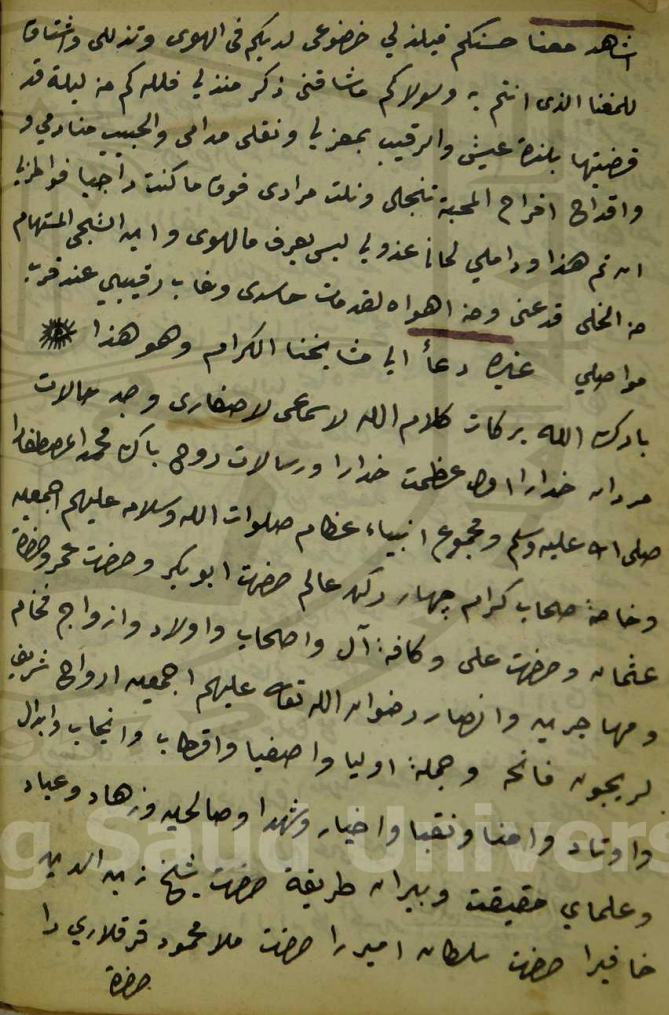 اشاهد معنا حسنكم فيلذ لي خضوعي لديكم في الهوى وتذللي واشتاق
للمغنا الذي انتم به ولولاكم ماشاقني ذكر منذلي فلله كم من ليلة قد
قضيتها بلذة عيش والرقيب بمعزلي ونقلي مدامي والحبيب منادمي و
واقداح افراح المحبة تنجلي ونلت مرادي فوق ماكنت راجيا فواطربا
ان تم هذا ودام لي لحانا عذولي ليس يعرف مالهوى واين الشجي المستهام
من الخلي فدعني ومن اهواه لقد مات حاسدي وغاب رقيبي عند قرب
مواصلي غيره دعاً الي مشايخنا الكرام وهو هذا
بارك الله بركات كلام الله لاسماعي وجد حالات
مردان خدارا عظمت خدارا ورسالات روح باك محمد المصطفا
صلى الله عليه وسلم ومجموع انبياء عظام صلوات الله وسلامه عليهم اجمعين
وخاصة صحاب كرام چهار ركن عالم حضرت ابوبكر وحضرت عمر وحضرة
عثمان وحضرت علي وكافة آل واصحاب واولاد وازواج فخام
ومهاجرين وانصار رضوان الله تعالى عليهم اجمعين ارواح شريف
لريچون فاتحه وجملة اوليا واصفيا واقطاب وانجاب وابدال
واوتاد وامنا ونقبا واخيار وشهدا وصالحين وزهاد وعباد
وعلماي حقيقت وبيران طريقة حضرت شيخ زين الدين
خافيرا حضرت سلطان اميررا حضرت ملا محمود را
حضرة
King Saud University